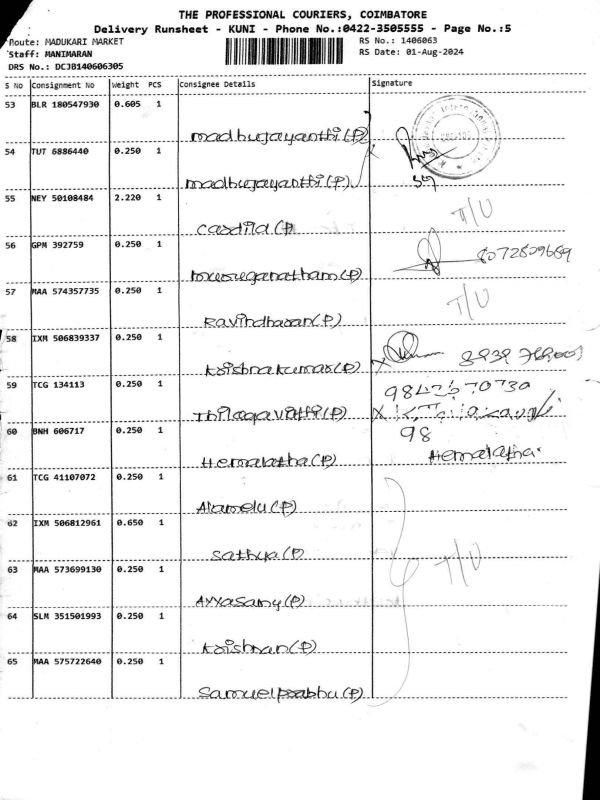 THE PROFESSIONAL COURIERS, COIMBATORE
Delivery Runsheet - KUNI - Phone No.:0422-3505555 - Page No.:5
Route: MADUKARI MARKET
RS No.: 1406063
Staff: MANIMARAN
RS Date: 01-Aug-2024
DRS No.: DCJB140606305
S No Consignment No Weight PCS Consignee Details Signature
53 BLR 180547930 0.605 1
madhujayanthi(P)
54 TUT 6886440 0.250 1
madhujayanthi(P)
55 NEY 50108484 2.220 1
T/U
Cardila(P)
56 GPM 392759 0.250 1
8072809669
muruganatham(P)
57 MAA 574357735 0.250 1
T/U
Ravindharan(P)
58 IXM 506839337 0.250 1
Krishnakumar(P)
59 TCG 134113 0.250 1
Thilagavathi(P)
60 BNH 606717 0.250 1
98
Hemalatha
Hemalatha(P)
61 TCG 41107072 0.250 1
Alamelu(P)
62 IXM 506812961 0.650 1
Sathya(P)
T/U
63 MAA 573699130 0.250 1
Ayyasamy(P)
64 SLM 351501993 0.250 1
Krishnan(P)
65 MAA 575722640 0.250 1
Samuelprabhu(P)